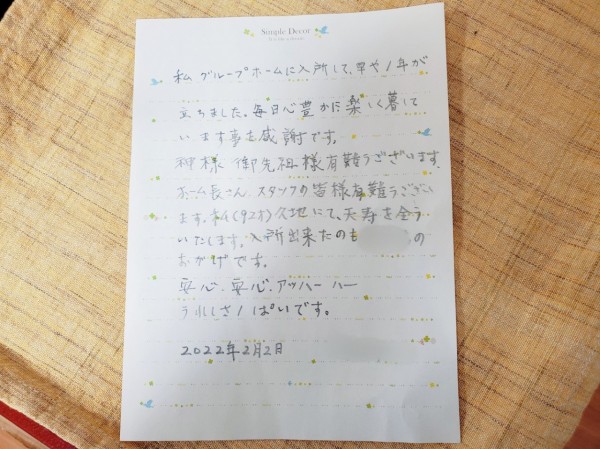 Simple Decor
私 グループホームに入所して、早や1年が
立ちました。毎日心豊かに楽しく暮して
います事を感謝です。
神様 御先祖様有難うございます。
ホーム長さん スタッフの皆様有難うござい
ます。私(92才)久地にて、天寿を全う
いたします。入所出来たのも の
おかげです。
安心、安心、アッハー ハー
うれしさ1ぱいです。
2022年2月2日